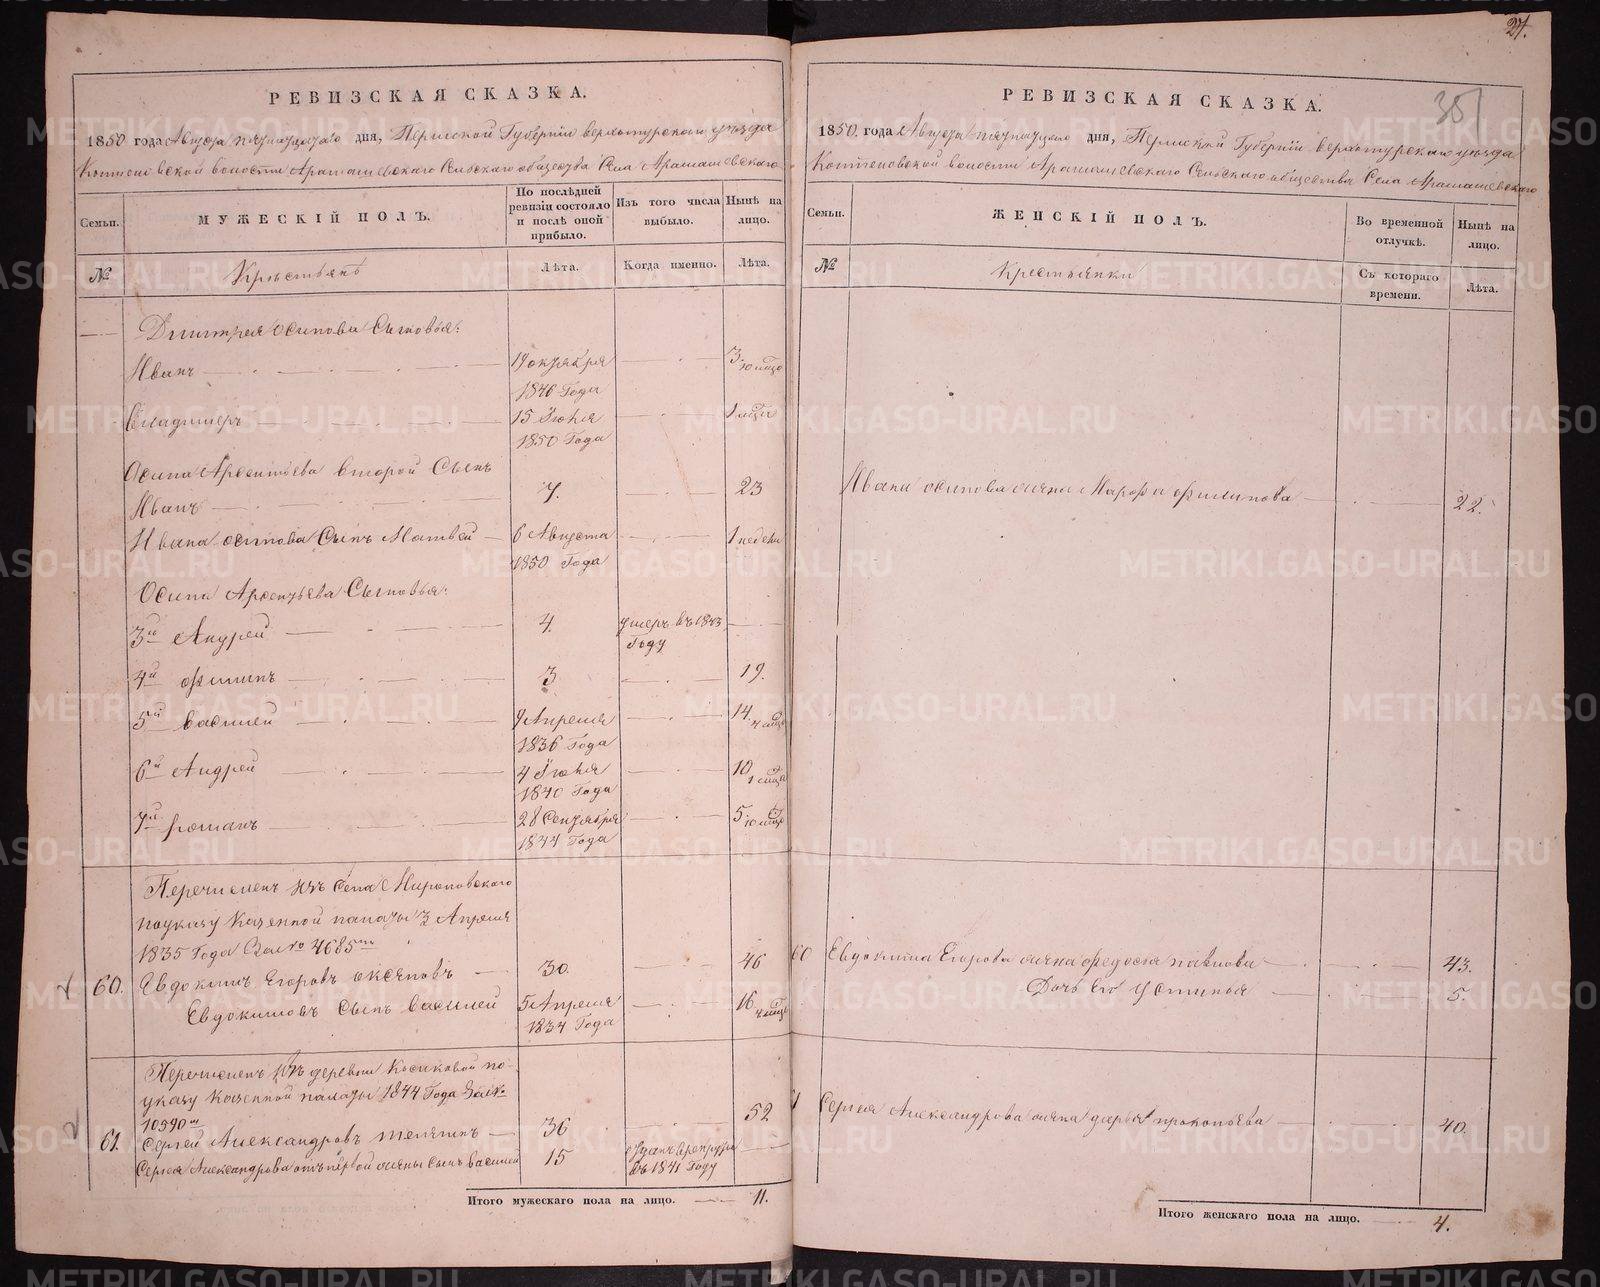 РЕВИЗСКАЯ СКАЗКА.
1850 года Августа пятнадцатаго дня, Пермской Губерніи верхотурскаго уѣзда
волости Арамашевскаго Сельскаго общества Села Арамашевскаго
Семьи.
МУЖЕСКІЙ ПОЛЪ.
По послѣдней ревизіи состояло и послѣ оной прибыло.
Изъ того числа выбыло.
Нынѣ на лицо.
№
Крестьянъ
Лѣта.
Когда именно.
Лѣта.
Дмитрея осипова Сыновья:
Иванъ
19 октября
1846 Года
3. 10 мѣсцо
Владимеръ
15 Іюля
1850 Года
1 мѣсц
Осипа Арсентьева второй Сынъ
Иванъ
7.
23
Ивана осипова Сынъ Матвей
6 Августа
1850 Года
1 недели
Осипа Арсентьева Сыновья:
3й Андрей
4.
умеръ въ 1843
Году
4й филипъ
3
19.
5й василей
9 Апреля
1836 Года
14. 4 мѣсцо
6й Андрей
4 Іюля
1840 Года
10 1 мѣсцъ
7й романъ
28 Сентября
1844 Года
5 10 мѣсцо
Перечисленъ изъ Села Мироновского
поуказу Казенной палаты 3 Апреля
1835 Года За № 4685мъ
60.
Евдокимъ Егоровъ аксеновъ
30.
46
Евдокимовъ Сынъ василей
5 Апреля
1834 Года
16 4 мѣсцъ
Перечисленъ изъ деревни Косиковой по-
указу Казенной палаты 1844 Года За №
10390м
61.
Сергей Александровъ телегинъ
36
52
Сергея Александрова отъ первой жены Сынъ василей
15
отданъ врекруты
въ 1841 Году
Итого мужескаго пола на лицо. 11.
27.
35
РЕВИЗСКАЯ СКАЗКА.
1850. года Августа пятнадцаго дня, Пермской Губерніи верхотурскаго уѣзда
волости Арамашевскаго Сельскаго общества Села Арамашевскаго
Семьи.
ЖЕНСКІЙ ПОЛЪ.
Во временной отлучкѣ.
Нынѣ на лицо.
№
Крестьянки
Съ котораго времени.
Лѣта.
Ивана осипова жена Марфа филипова
22.
60
Евдокима Егорова жена федосья павлова
43.
Дочь его устинья
5.
Сергея Александрова жена дарья прокопьева
40.
Итого женскаго пола на лицо. 4.
METRIKI.GASO-URAL.RU